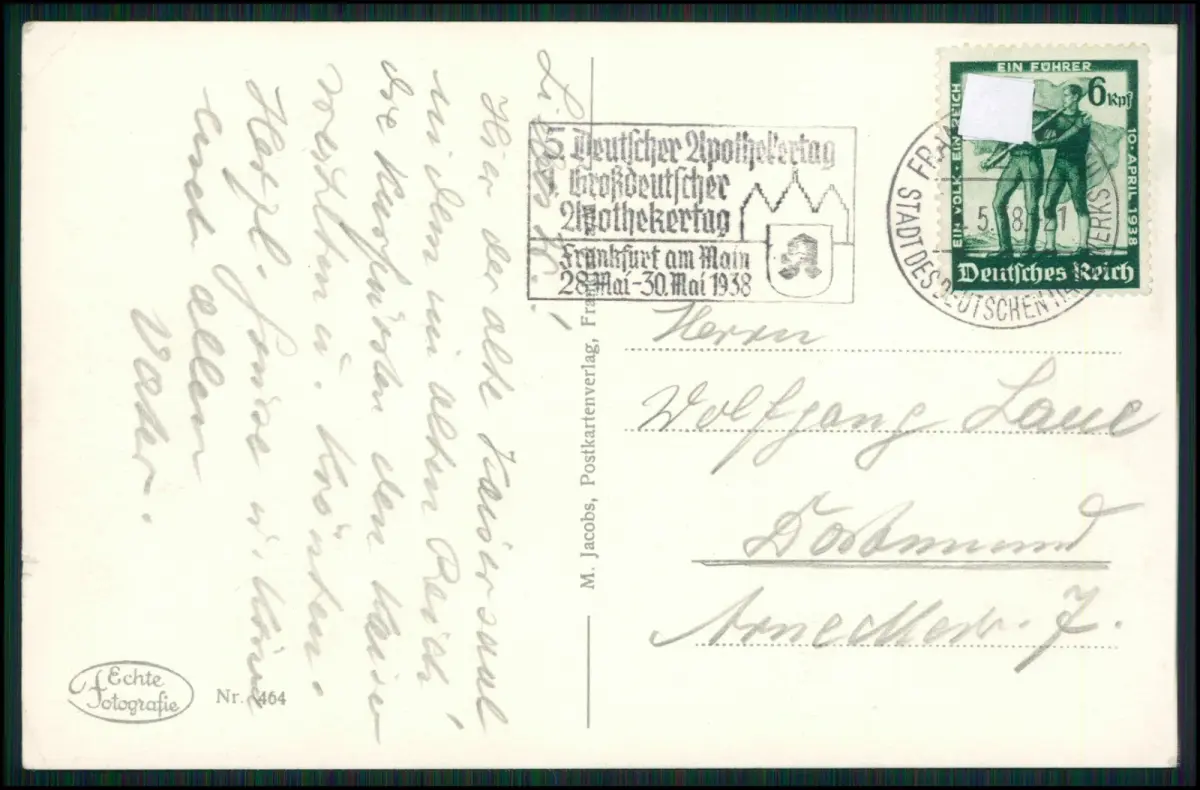 Lieber W.!
Hier der alte Kaisersaal
in dem im alten Reich
die Kurfürsten den Kaiser
wählten u. krönten.
Herzl. Grüsse u. Küsse
Euch allen
Vater.
Echte
Fotografie
Nr. 464
M. Jacobs, Postkartenverlag,
5. Deutscher Apothekertag
1. Großdeutscher
Apothekertag
Frankfurt am Main
28. Mai-30. Mai 1938
STADT DES DEUTSCHEN HANDWERKS
EIN VOLK · EIN REICH
EIN FÜHRER
10. APRIL 1938
6 Rpf
Deutsches Reich
Herrn
Wolfgang Laue
Dortmund
7.